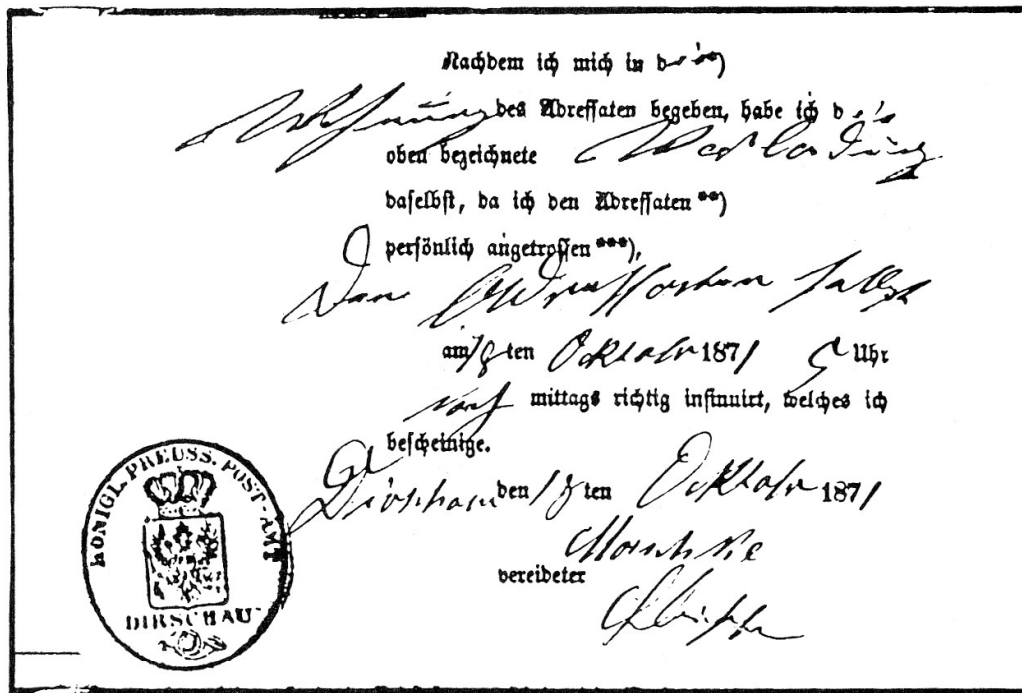 Nachdem ich mich in d
Wohnung des Adressaten begeben, habe ich die
oben bezeichnete Vorladung
daselbst, da ich den Adressaten **)
persönlich angetroffen ***),
dem Adressaten selbst
am 18 ten Oktober 1871 5 Uhr
Nach mittags richtig insinuirt, welches ich
bescheinige.
Dirschau den 18 ten Oktober 1871
vereideter
KÖNIGL. PREUSS. POST-AMT
DIRSCHAU